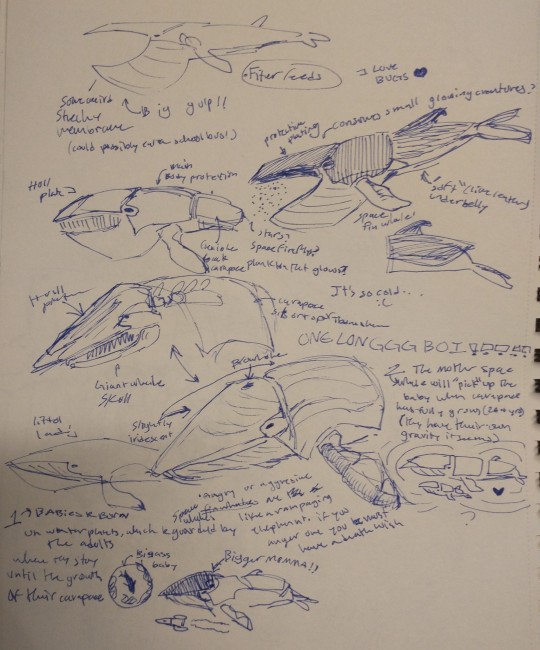 Filter feeds
I LOVE
BUGS
Some weird
Stretchy
membrane
Big gulp!!
(could possibly eat a school bus!)
protective
plating
consumes small glowing creatures?
Hull
plate?
main
Body protection
soft
underbelly
space
fin whale!
stars?
space fireflies?
plankton that glows?
back
carapace
It's so cold...
:(
Hull
carapace
ONE LONGGG BOI
Giant whale
SKull
Browhole
Slightly
iridescent
2. The mother space
whale will "pick" up the
baby when carapace
has fully grown
(they have their own
gravity it seems)
littol
angry or aggressive
space
whales are
like a rampaging
elephant. if you
anger one you must
have a death wish
1 → BABIES R BORN
on water plants, which is guarded by
the adults
where they stay
until the growth
of their carapace
Bigass
baby
Bigger MOMMA!!